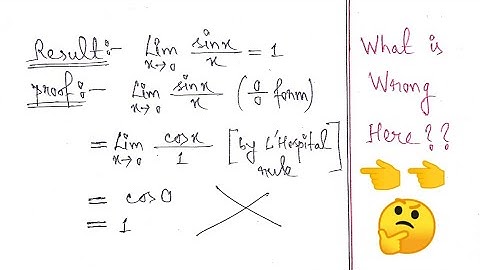 Result:- Lim x→0 sinx/x = 1
Proof:- Lim x→0 sinx/x (0/0 form)
= Lim x→0 cosx/1 [by L'Hospital rule]
= cos0
= 1
What is
Wrong
Here??